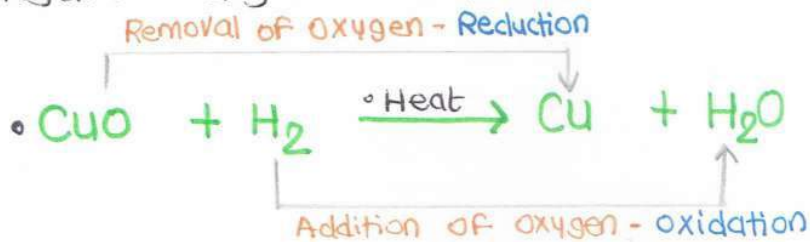 Removal of oxygen - Reduction
• CuO + H2 • Heat → Cu + H2O
Addition of oxygen - oxidation